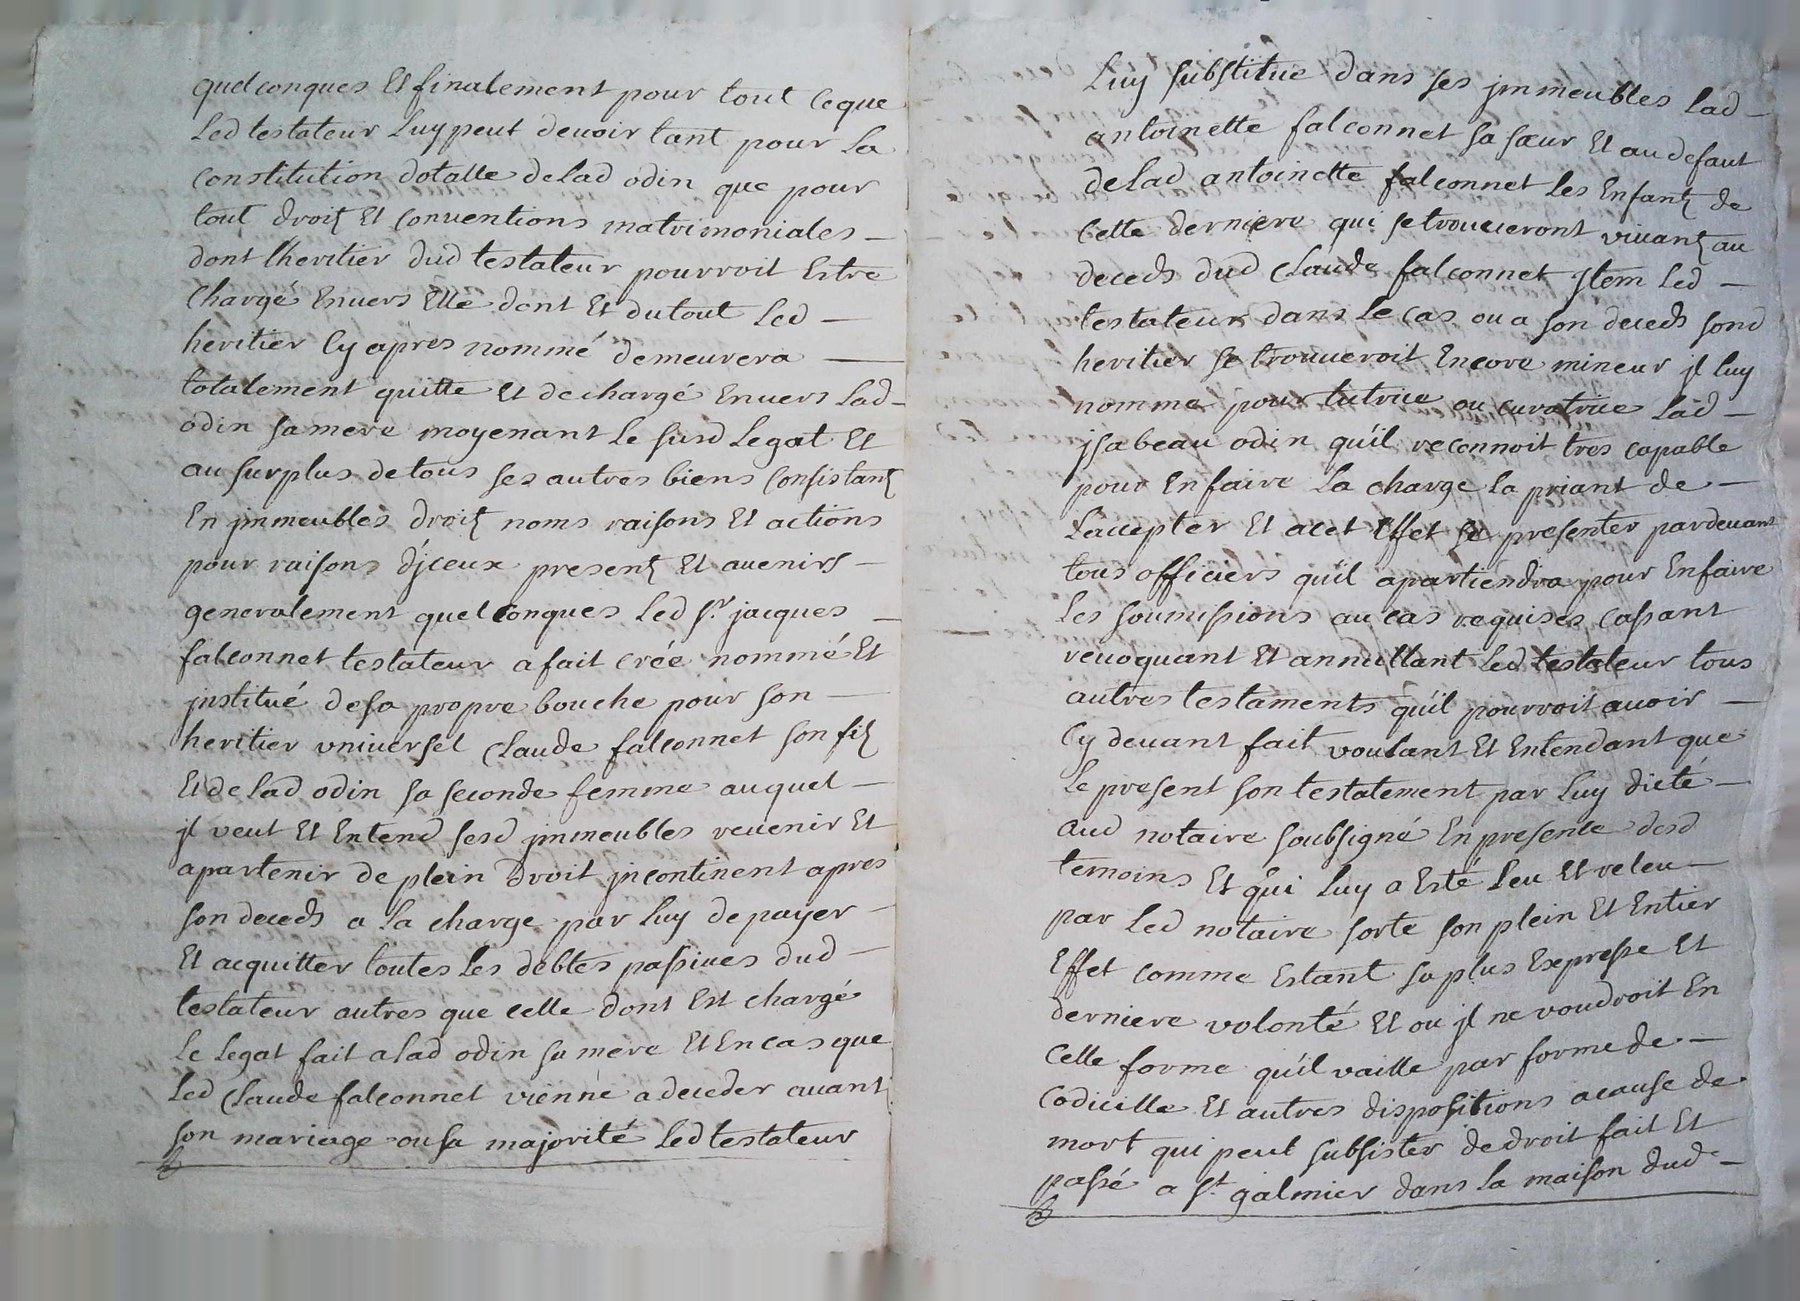 quelconques Et finalement pour tout ceque
Led testateur Luy peut devoir tant pour La
constitution dotalle de Lad odin que pour
tout droitz Et conventions matrimoniales _
dont l'heritier dud testateur pourroit Estre
Chargé Envers Elle dont Et du tout Led _
heritier Cy apres nommé demeurera _
totalement quitte Et dechargé Envers Lad _
odin sa mere moyenant Le susd Legat Et
au surplus de tous ses autres biens Consistantz
En jmmeubles droitz noms raisons Et actions
pour raisons d'jceux presentz Et avenirs _
generalement quelconques Led Sr. jacques _
falconnet testateur a fait crée nommé Et
jnstitué de sa propre bouche pour son _
heritier vniversel Claude falconnet son filz
Et de Lad odin sa seconde femme auquel _
jl veut Et Entend sesd jmmeubles revenir Et
apartenir de plein droit jncontinent apres
son deceds a la charge par Luy de payer _
Et acquitter toutes Les debtes passives dud _
testateur autres que celle dont Est chargé
Le Legat fait a Lad odin sa mere Et En cas que
Led Claude falconnet vienne a deceder avant
son mariage ou sa majorité Led testateur
Luy substitue dans ses jmmeubles Lad _
antoinette falconnet sa sœur Et au defaut
de Lad antoinette falconnet Les Enfantz de
Cette derniere qui se trouveront vivantz au
deceds dud Claude falconnet Jtem Led _
testateur dans Le cas ou a son deceds sond
heritier se trouveroit Encore mineur jl luy
nomme pour tutrice ou curatrice Lad _
jsabeau odin qu'il reconnoit tres capable
pour En faire La charge La priant de _
L'accepter Et a cet Effet se presenter pardevant
tous officiers qu'il apartiendra pour En faire
Les soumissions au cas requises cassant
revoquant Et annullant Led testateur tous
autres testaments qu'il pourroit avoir _
Cy devant fait voulant Et Entendant que
Le present son testatement par Luy dicté _
aud notaire soubsigné En presence desd
temoins Et qui Luy a Esté Leu Et releu _
par Led notaire sorte son plein Et Entier
Effet comme Estant sa plus Expresse Et
derniere volonté Et ou jl ne voudroit En
Cette forme qu'il vaille par forme de _
Codicille Et autres dispositions a cause de
mort qui peut subsister de droit fait Et
passé a St. galmier dans La maison dud _